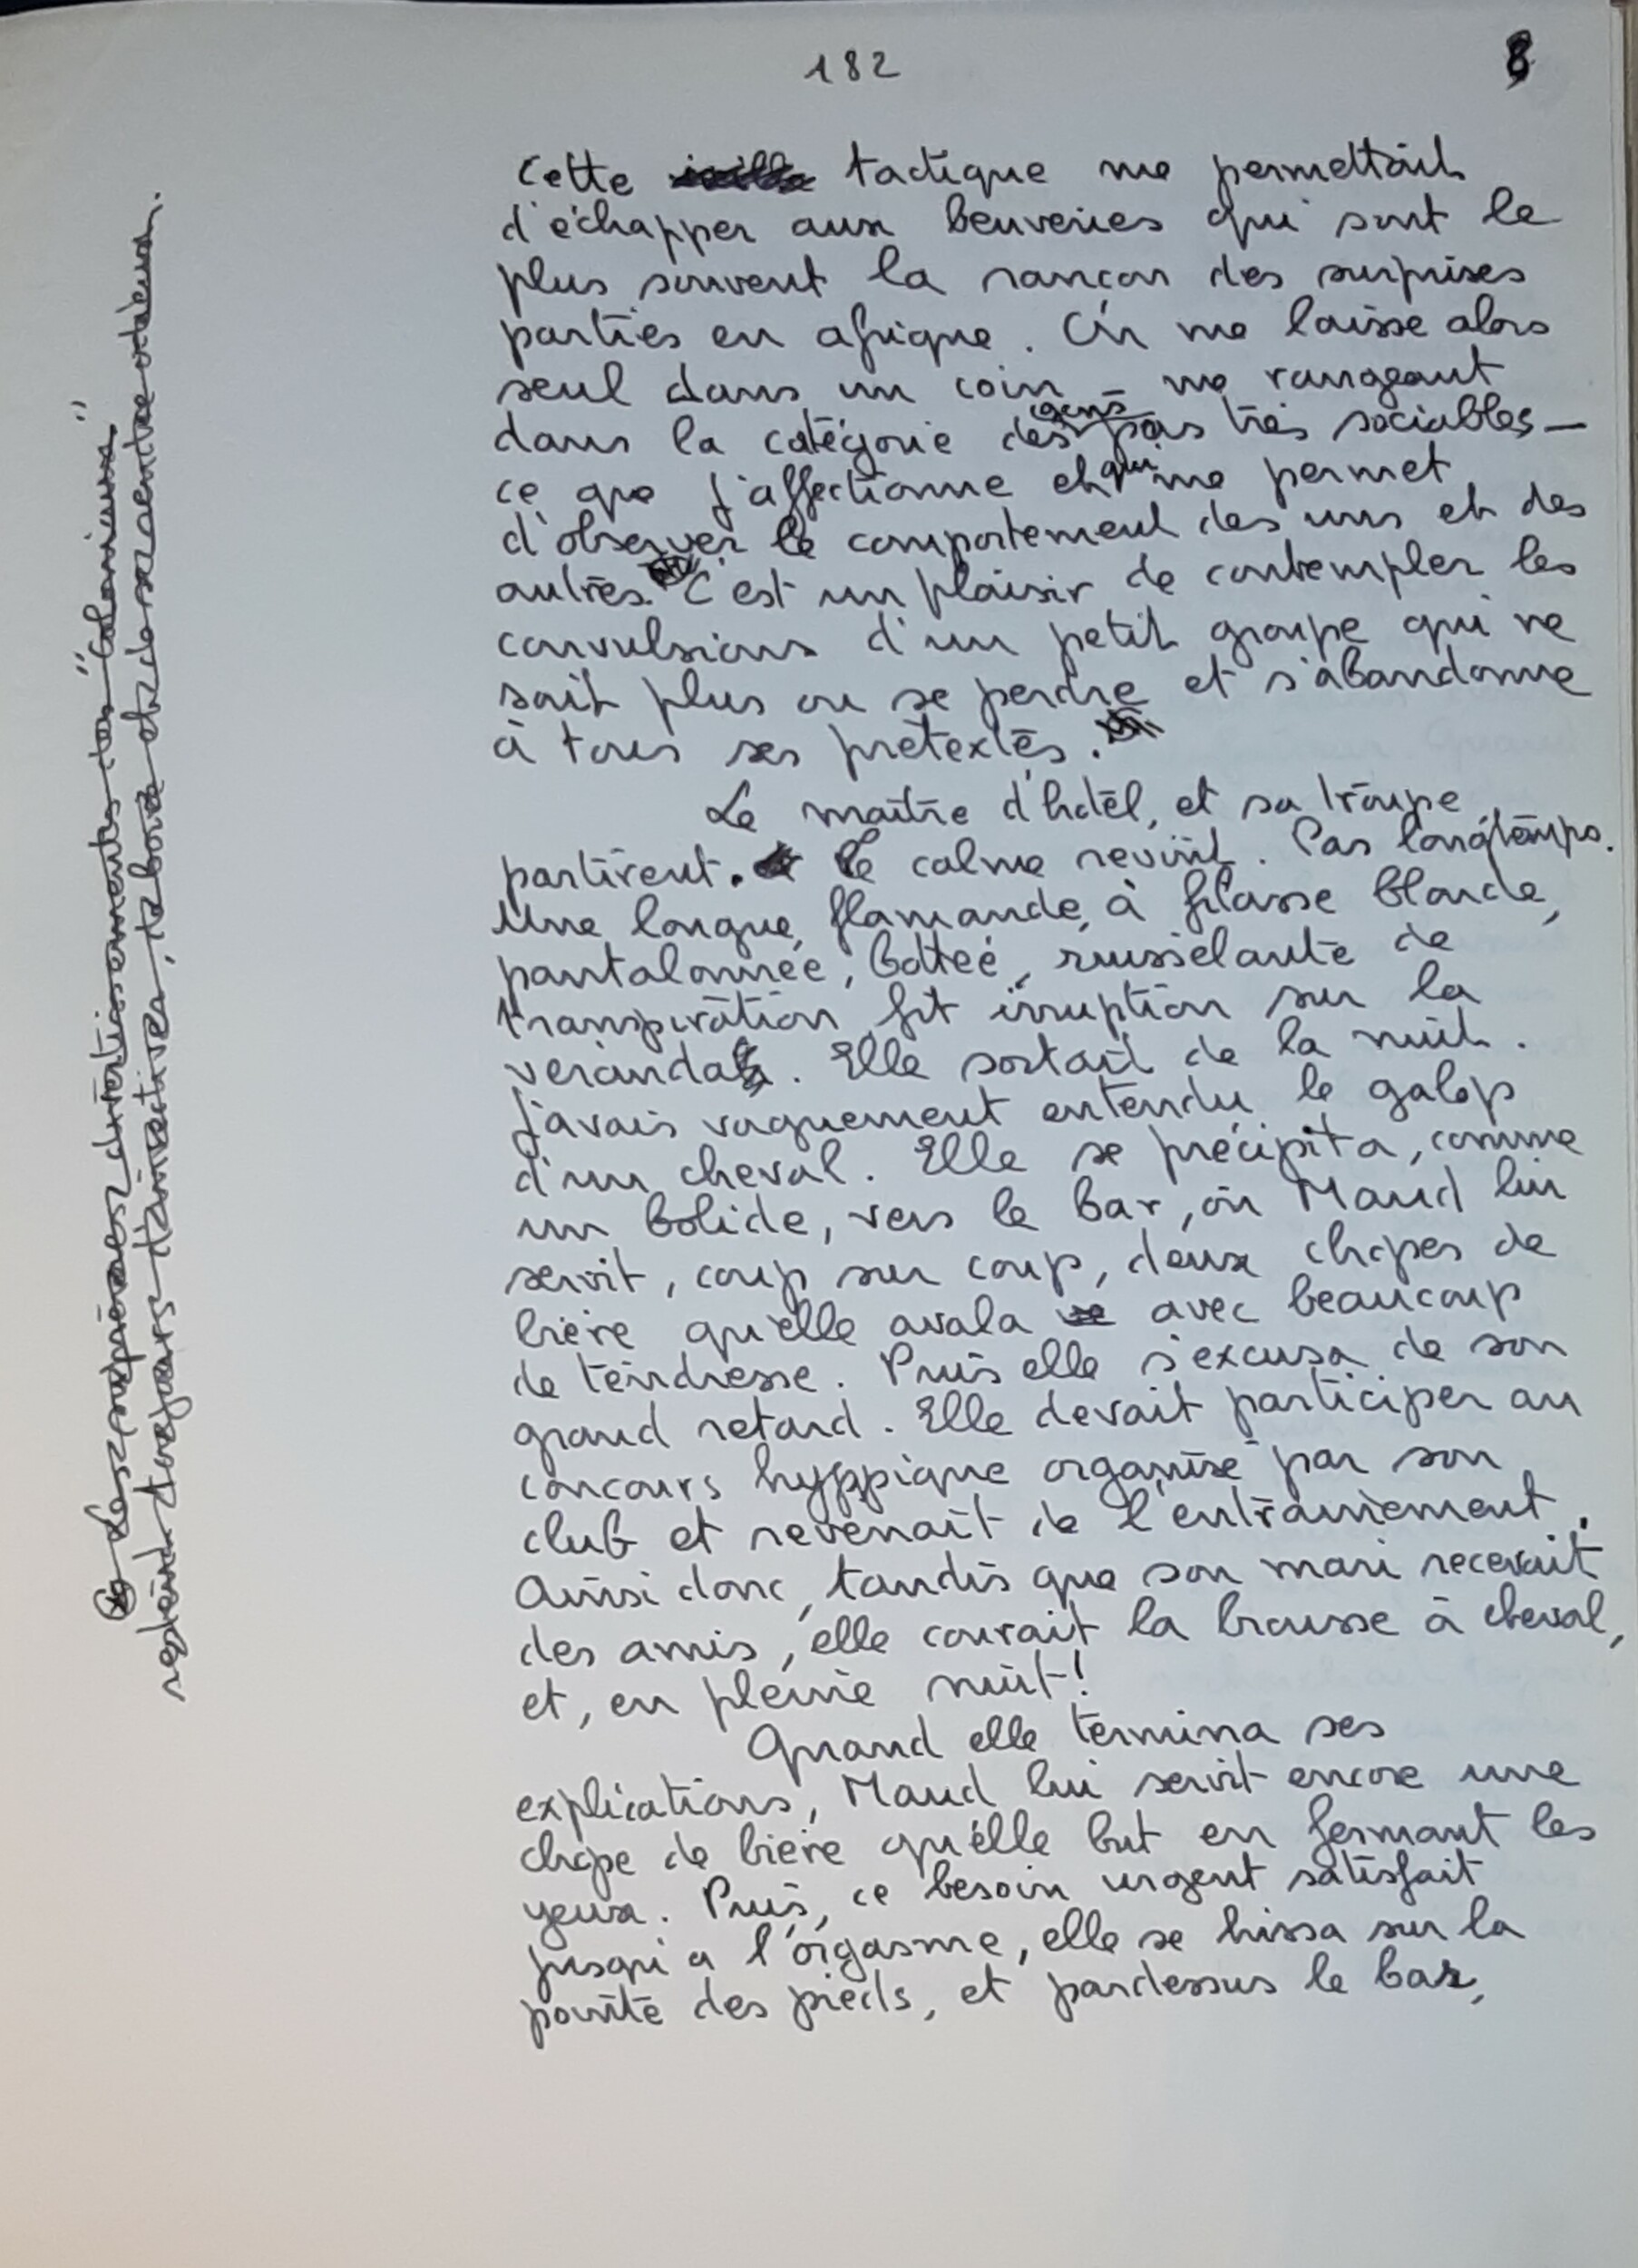 182
8
Cette tactique me permettait
d'échapper aux beuveries qui sont le
plus souvent la rançon des surprises
parties en afrique. On me laisse alors
seul dans un coin – me rangeant
dans la catégorie des gens pas très sociables –
ce que j'affectionne et qui me permet
d'observer le comportement des uns et des
autres. C'est un plaisir de contempler les
convulsions d'un petit groupe qui ne
sait plus ou se perdre et s'abandonne
à tous ses prétextes.
Le maître d'hôtel, et sa troupe
partirent. Le calme revint. Pas longtemps.
Une longue, flamande, à filasse blonde,
pantalonnée, bottée, ruisselante de
transpiration fit irruption sur la
veranda. Elle sortait de la nuit.
J'avais vaguement entendu le galop
d'un cheval. Elle se précipita, comme
un bolide, vers le bar, où Maud lui
servit, coup sur coup, deux chopes de
bière qu'elle avala avec beaucoup
de tendresse. Puis elle s'excusa de son
grand retard. Elle devait participer au
concours hyppique organisé par son
club et revenait de l'entrainement.
Ainsi donc, tandis que son mari recevait
des amis, elle courait la brousse à cheval,
et, en pleine nuit!
Quand elle termina ses
explications, Maud lui servit encore une
chope de bière qu'elle but en fermant les
yeux. Puis, ce besoin urgent satisfait
jusqu'a l'orgasme, elle se hissa sur la
pointe des pieds, et pardessus le bar,
divertissements des "Coloniaux"
toujours